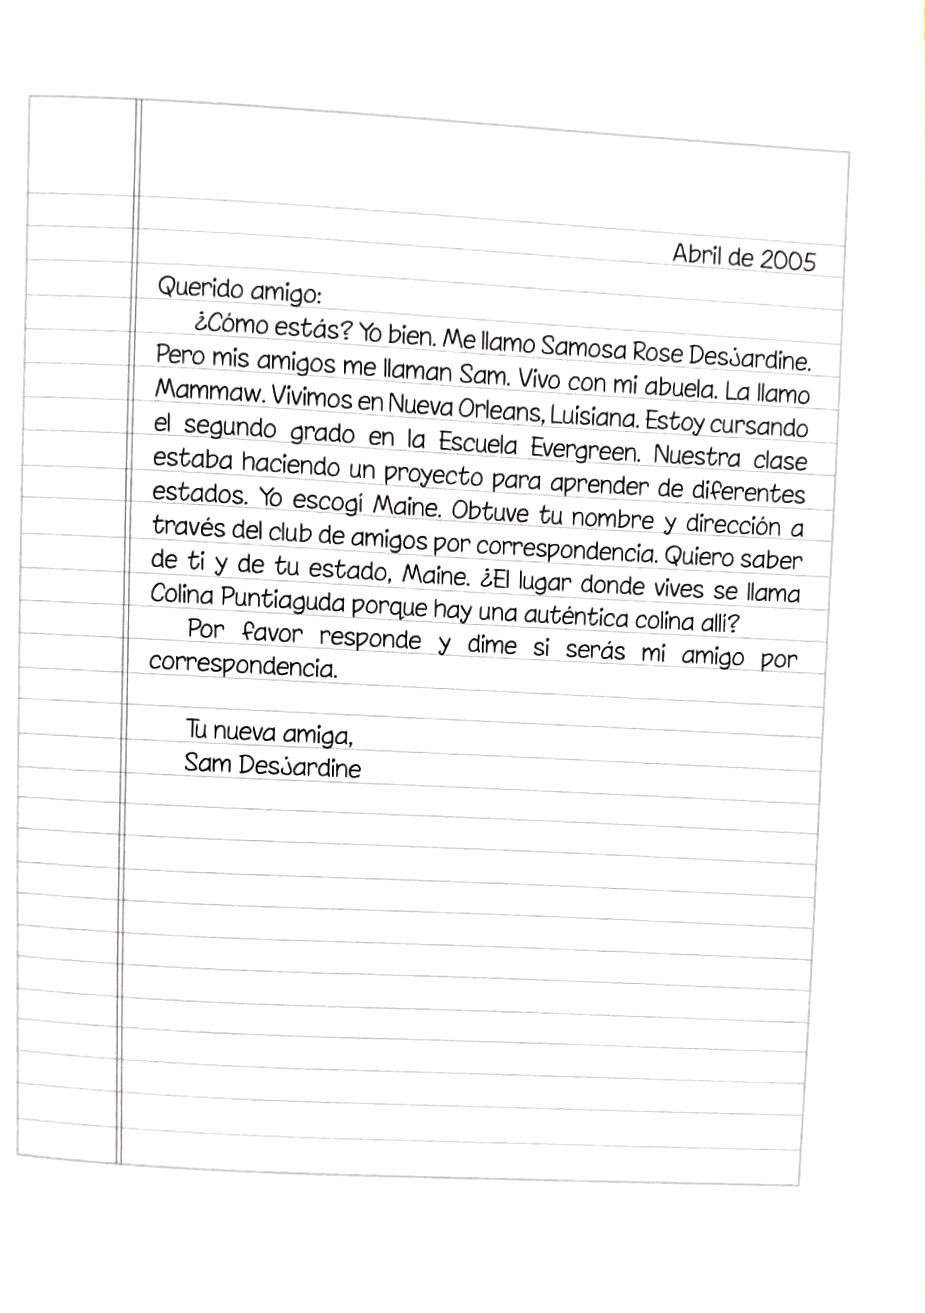 Abril de 2005
Querido amigo:
¿Cómo estás? Yo bien. Me llamo Samosa Rose Desjardine.
Pero mis amigos me llaman Sam. Vivo con mi abuela. La llamo
Mammaw. Vivimos en Nueva Orleans, Luisiana. Estoy cursando
el segundo grado en la Escuela Evergreen. Nuestra clase
estaba haciendo un proyecto para aprender de diferentes
estados. Yo escogí Maine. Obtuve tu nombre y dirección a
través del club de amigos por correspondencia. Quiero saber
de ti y de tu estado, Maine. ¿El lugar donde vives se llama
Colina Puntiaguda porque hay una auténtica colina allí?
Por favor responde y dime si serás mi amigo por
correspondencia.
Tu nueva amiga,
Sam Desjardine